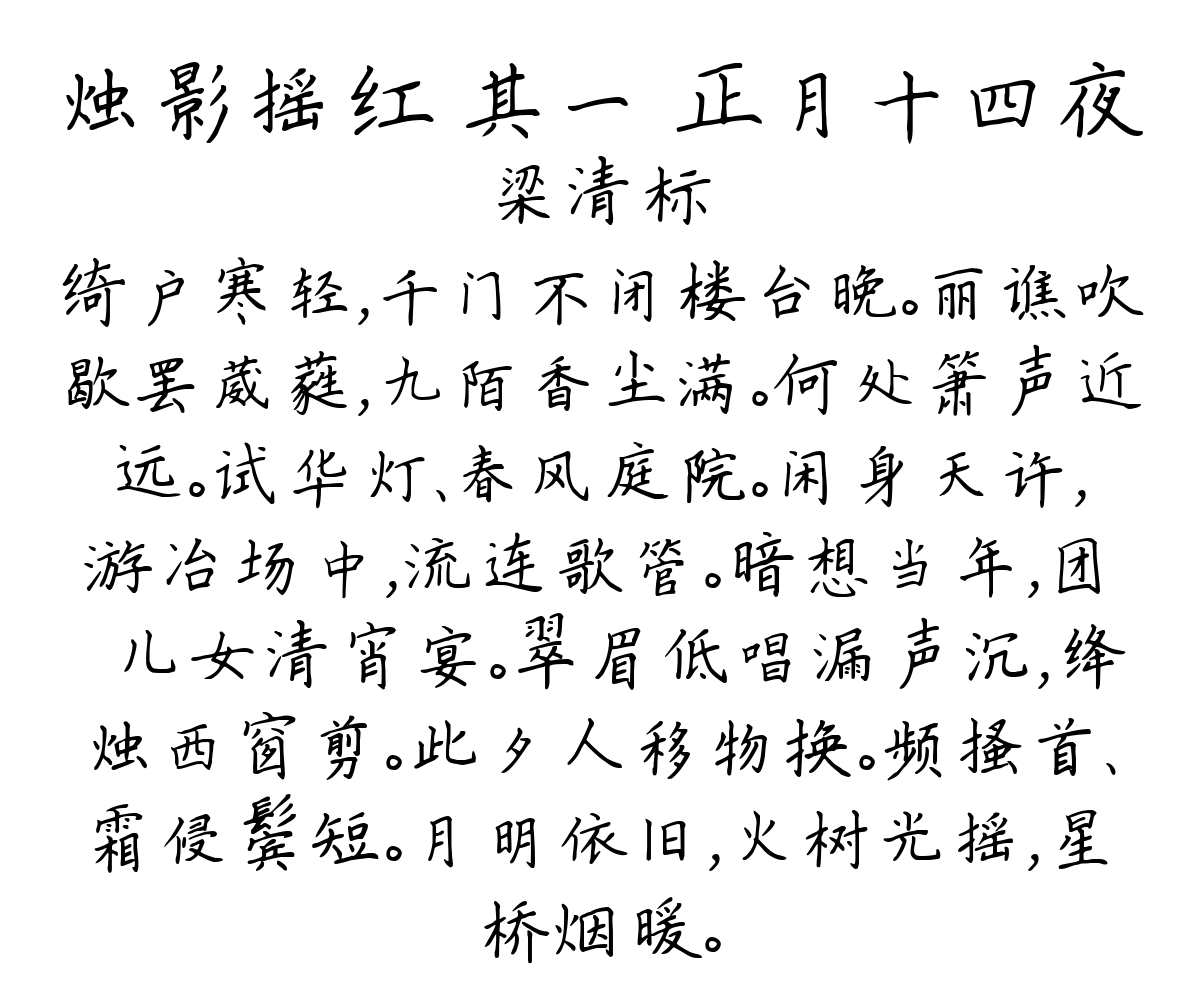 烛影摇红 其一 正月十四夜
梁清标
绮户寒轻,千门不闭楼台晚。丽谯吹
歇罢葳蕤,九陌香尘满。何处箫声近
远。试华灯、春风庭院。闲身天许,
游冶场中,流连歌管。暗想当年,团
儿女清宵宴。翠眉低唱漏声沉,绛
烛西窗剪。此夕人移物换。频搔首、
霜侵鬓短。月明依旧,火树光摇,星
桥烟暖。